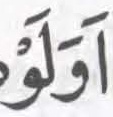 اَوَلَوْ